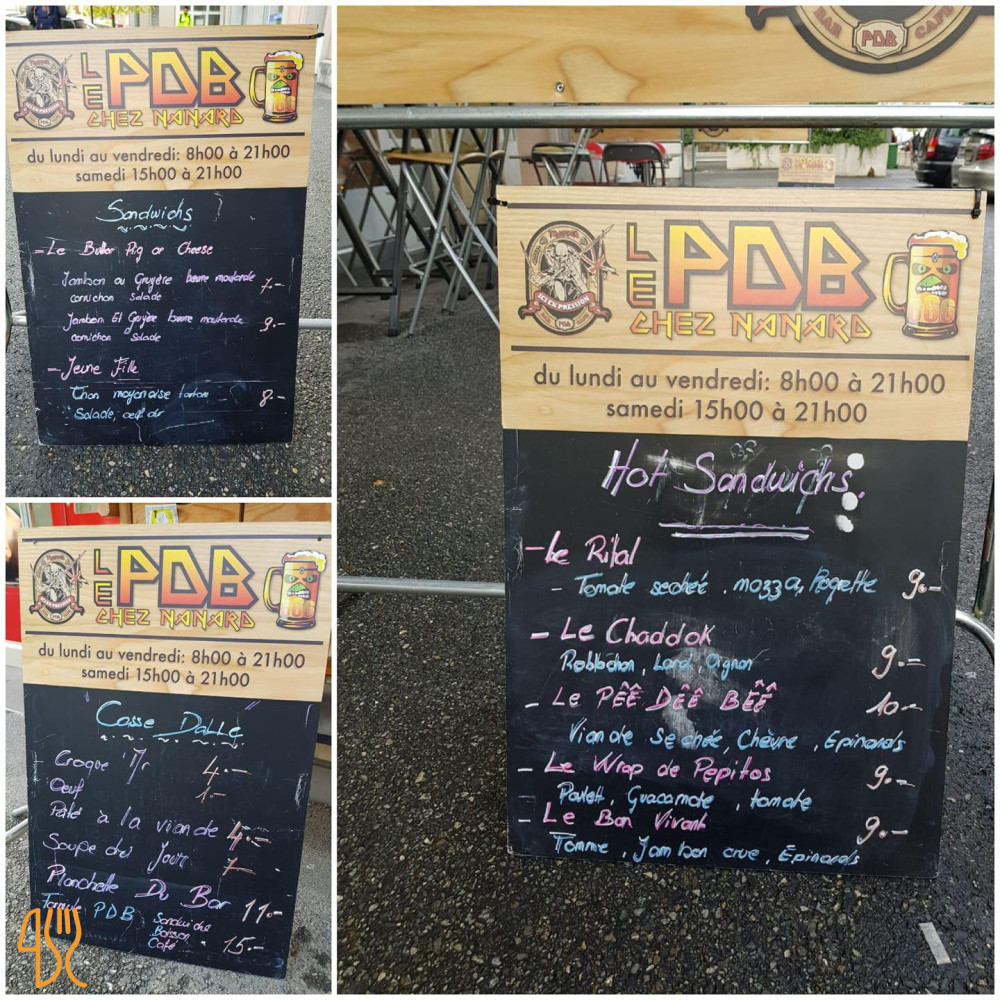 LE PDB
CHEZ NANARD
du lundi au vendredi: 8h00 à 21h00
samedi 15h00 à 21h00
Sandwichs
- Le Butter Pig or Cheese
Jambon ou Gruyère beurre moutarde
cornichon salade 7.-
Jambon Et Gruyère beurre moutarde
cornichon Salade 9.-
- Jeune Fille
Thon mayonaise tartare 8.-
Salade, oeuf dur
LE PDB
CHEZ NANARD
du lundi au vendredi: 8h00 à 21h00
samedi 15h00 à 21h00
Casse Dalle
Croque Mr 4.-
Oeuf 1.-
Pâté à la viande 4.-
Soupe du Jour 7.-
Planchette Du Bar 11.-
Formule PDB Sandwiche
Boisson
Café 15.-
BAR PDB CAFE
LE PDB
CHEZ NANARD
SEX EN PRESSION
du lundi au vendredi: 8h00 à 21h00
samedi 15h00 à 21h00
Hot Sandwichs.
- Le Rital
- Tomate sechée, mozza, Roquette 9.-
- Le Chaddok
Reblochon, Lard, Oignon 9.-
- Le PÊÊ DÊÊ BÊÊ 10.-
Viande Sechée, Chèvre, Epinards
- Le Wrap de Pepitos 9.-
Poulet, Guacamole, tomate
- Le Bon Vivant 9.-
Tomme, Jambon crue, Epinards